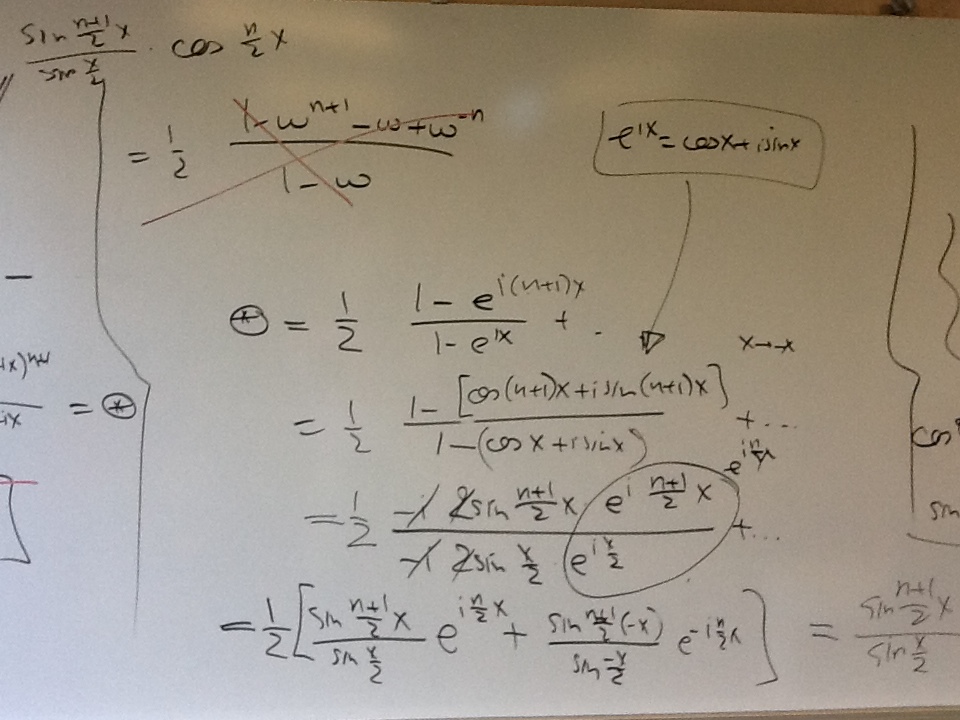 sin (n+1)/2 x / sin x/2 · cos n/2 x
= 1/2 (1 - ω^(n+1) - ω + ω^(-n)) / (1 - ω)
e^(ix) = cos x + i sin x
⊛ = 1/2 (1 - e^(i(n+1)x)) / (1 - e^(ix)) + .
x → -x
= 1/2 (1 - [cos(n+1)x + i sin(n+1)x]) / (1 - (cos x + i sin x)) + ...
= ⊛
e^(i n/2 x)
= 1/2 (-i 2 sin (n+1)/2 x e^(i (n+1)/2 x)) / (-i 2 sin x/2 e^(i x/2)) + ...
= 1/2 [ sin (n+1)/2 x / sin x/2 e^(i n/2 x) + sin (n+1)/2 (-x) / sin -x/2 e^(-i n/2 x) ] = sin (n+1)/2 x / sin x/2